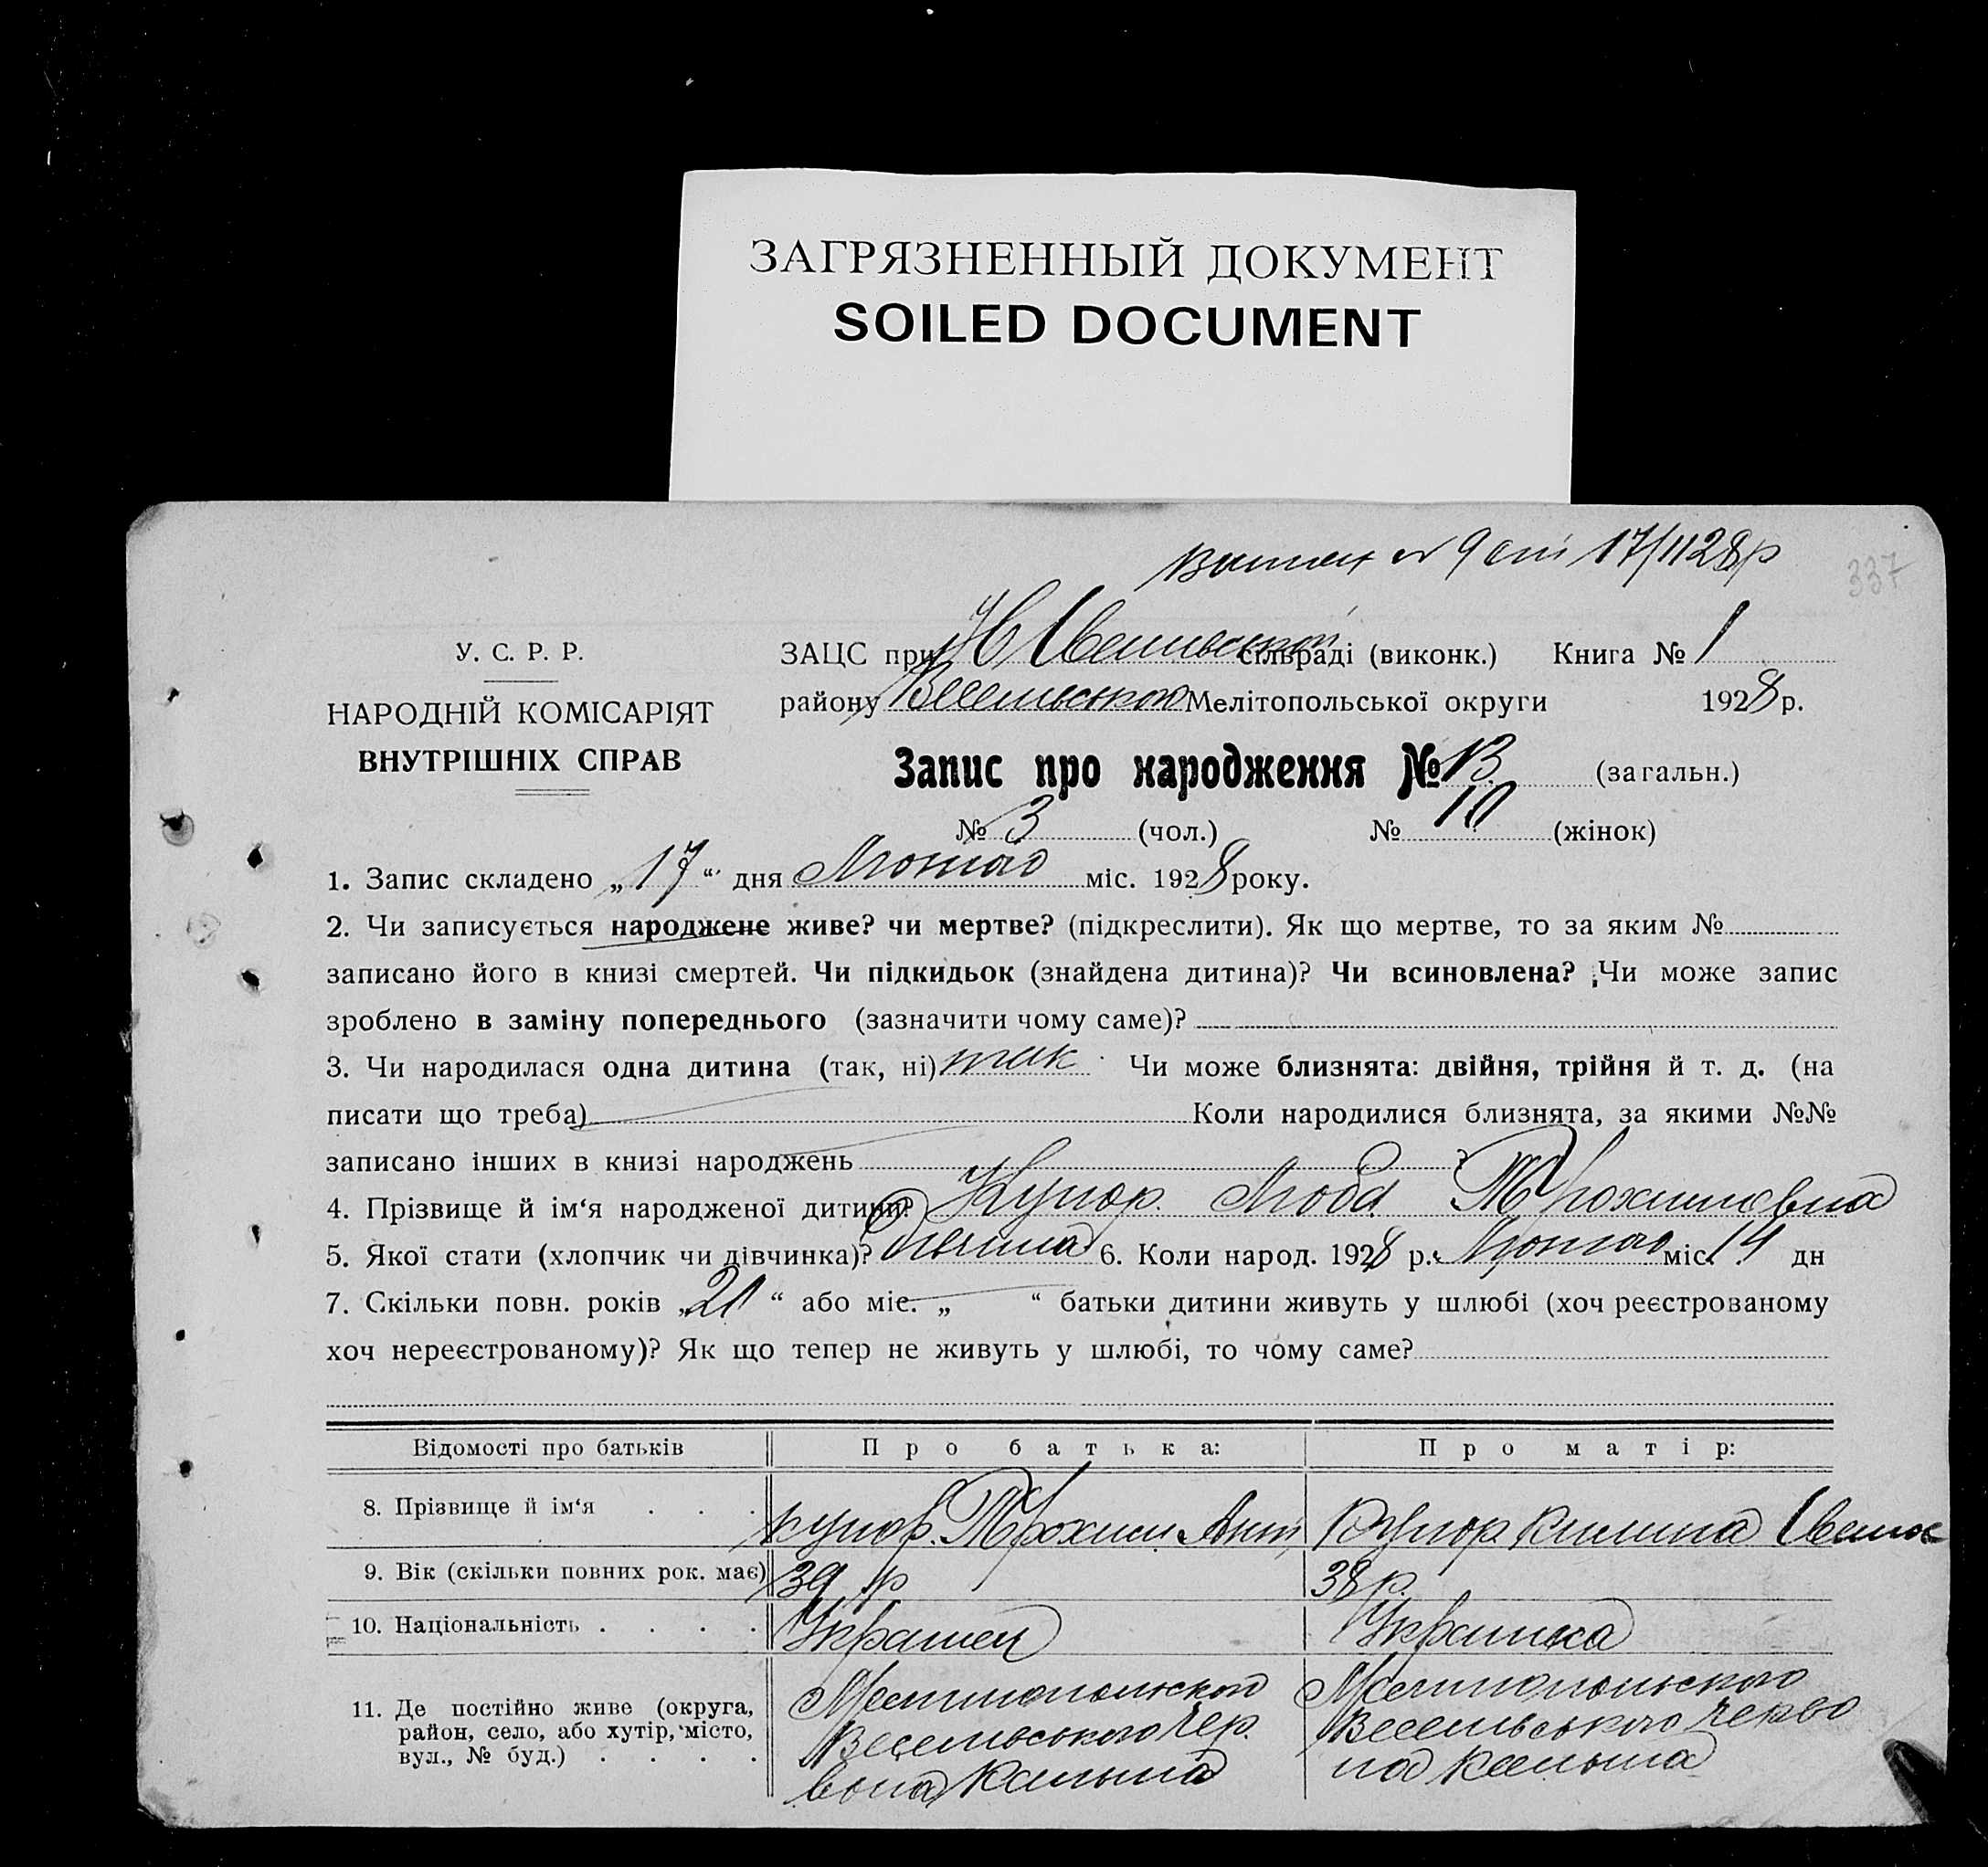 ЗАГРЯЗНЕННЫЙ ДОКУМЕНТ
SOILED DOCUMENT
17/II 28 р
337
У. С. Р. Р.
НАРОДНІЙ КОМІСАРІЯТ
ВНУТРІШНІХ СПРАВ
ЗАЦС при сільраді (виконк.) Книга № 1
району Веселівського Мелітопольської округи 1928 р.
Запис про народження № 13 (загальн.)
№ 3 (чол.) № 10 (жінок)
1. Запис складено „ 17 “ дня Лютого міс. 1928 року.
2. Чи записується народжене живе? чи мертве? (підкреслити). Як що мертве, то за яким №
записано його в книзі смертей. Чи підкидьок (знайдена дитина)? Чи всиновлена? Чи може запис
зроблено в заміну попереднього (зазначити чому саме)?
3. Чи народилася одна дитина (так, ні) так Чи може близнята: двійня, трійня й т. д. (на
писати що треба) Коли народилися близнята, за якими №№
записано інших в книзі народжень ?
4. Прізвище й ім‘я народженої дитини? Люба Трохимовна
5. Якої стати (хлопчик чи дівчинка)? 6. Коли народ. 1928 р. Лютого міс. 14 дн
7. Скільки повн. років „ 20 “ або міс. „ “ батьки дитини живуть у шлюбі (хоч реєстрованому
хоч нереєстрованому)? Як що тепер не живуть у шлюбі, то чому саме?
Відомості про батьків Про батька: Про матір:
8. Прізвище й ім‘я . . . Трохим Ант
9. Вік (скільки повних рок. має) 39 р 38 р.
10. Національність . . . . Українец Українка
11. Де постійно живе (округа,
район, село, або хутір, місто,
вул., № буд.) . . . .
Мелитопольской
Веселівського Чер.
вона
Мелитопольского
Веселівського черво
на